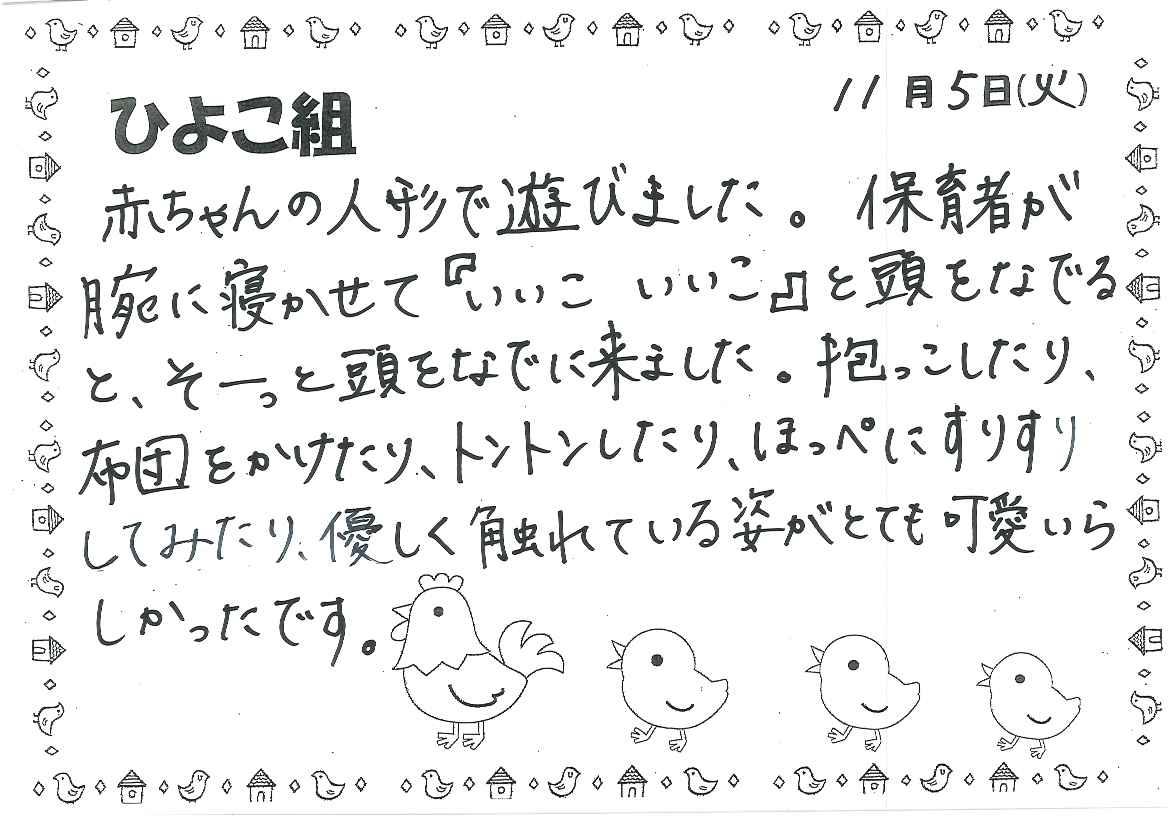 11月5日(火)
ひよこ組
赤ちゃんの人形で遊びました。保育者が
腕に寝かせて『いいこ いいこ』と頭をなでる
と、そーっと頭をなでに来ました。抱っこしたり、
布団をかけたり、トントンしたり、ほっぺにすりすり
してみたり、優しく触れている姿がとても可愛いら
しかったです。